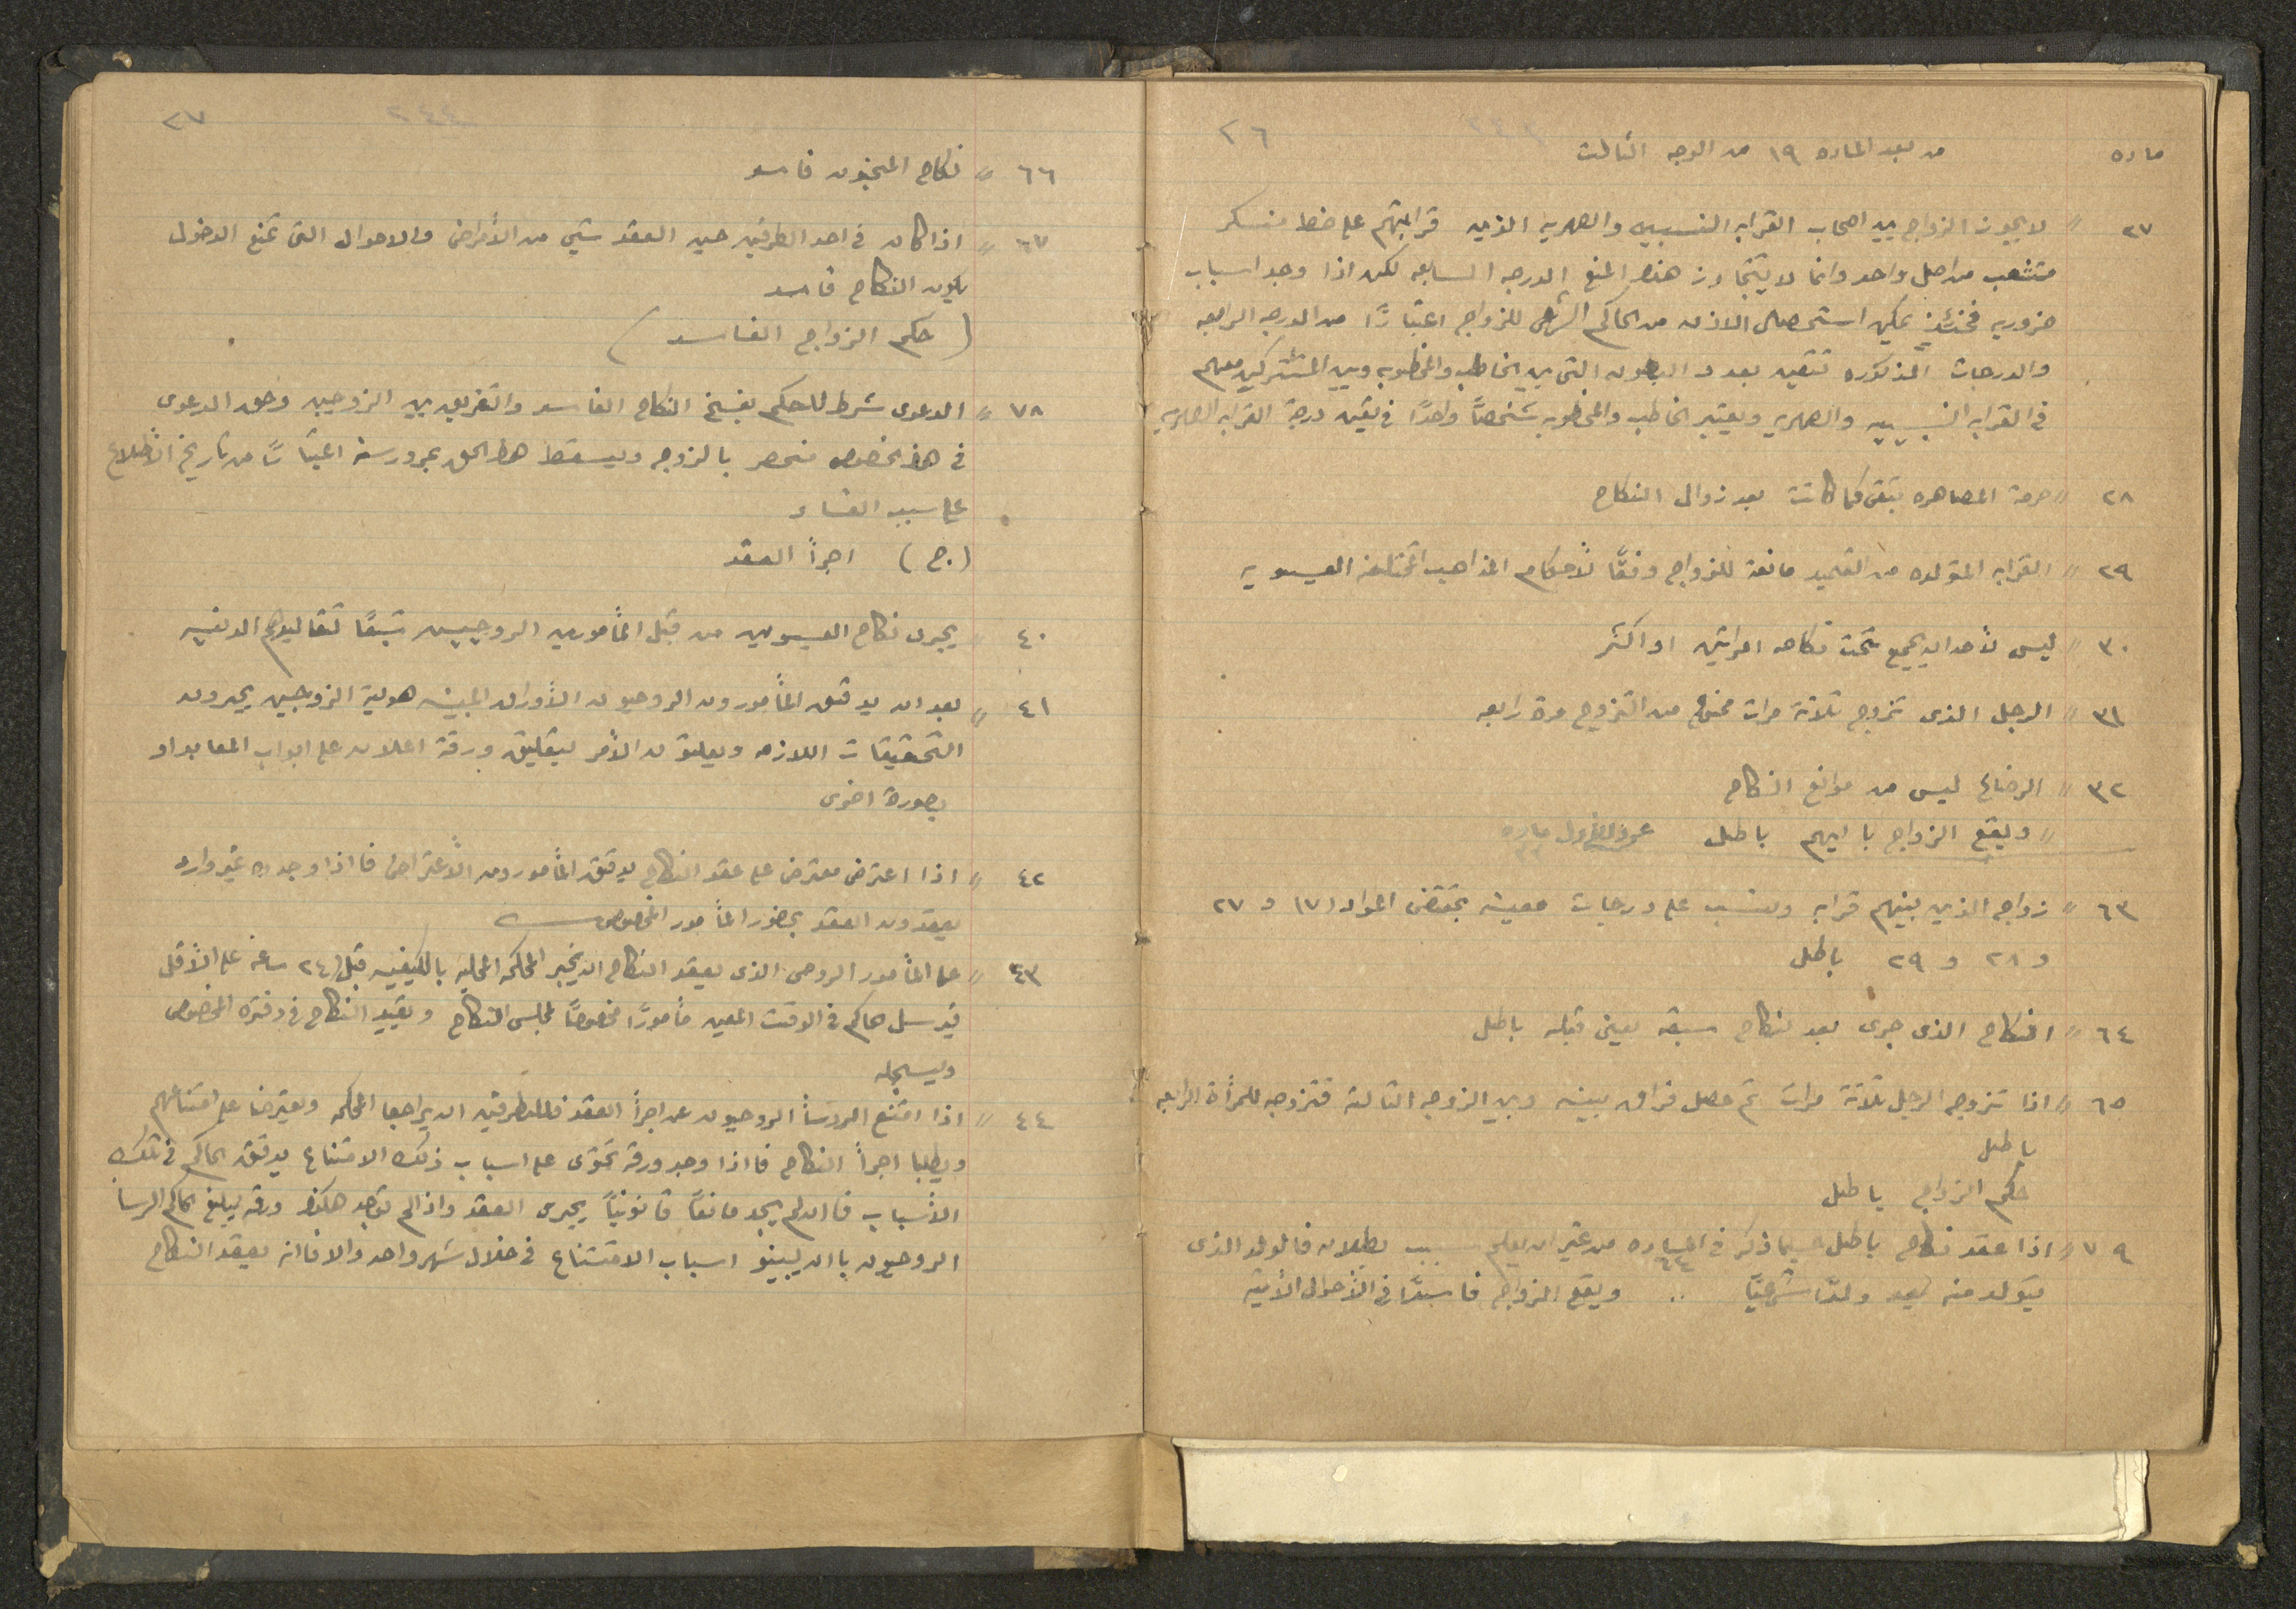 ٢٦
ماده من بعد الماده ١٩ من الوجه الثالث
٢٧ " لا يجوز الزواج بين اصحاب القرابه النسبيه والصهريه الذين قرابتهم على خط منكسر
متشعب من اصل واحد وانما لا يتجاوز هذا المنع الدرجه السابعه لكن اذا وجد اسباب
ضروريه فحينئذٍ يمكن استحصال الاذن من الحاكم الشرعى للزواج اعتبارًا من الدرجه الرابعه
والدرجات المذكوره تتعين بعدد البطون التى بين الخاطب والمخطوبه وبين المشتركين معهم
فى القرابه النسبيه والصهريه ويعتبر الخاطب والمخطوبه شخصًا واحدًا فى تعين درجة القرابه الصهريه
٢٨ " حرمة المصاهره تبقى كما كانت بعد زوال النكاح
٢٩ " القرابه المتولده من التعميد مانعة للزواج وفقًا لأحكام المذاهب المختلفه العيسويه
٣٠ " ليس لأحد ان يجمع تحت نكاحه امرأتين او اكثر
٣١ " الرجل الذى تزوج ثلاثة مرات ممنوع من التزوج مرة رابعه
٣٢ " الرضاع ليس من موانع النكاح
" ويقع الزواج با ابيهم باطل ماده
٦٣ " زواج الذين بينهم قرابه ونسب على درجات معينه بمقتضى المواد (١٧ و ٢٧
و ٢٨ و ٢٩ باطل
٦٤ " النكاح الذى جرى بعد نكاح سبقه يعنى قبله باطل
٦٥ " اذا تزوج الرجل ثلاثة مرات ثم حصل فراق بينه وبين الزوجه الثالثه فتزوجه للمرأة الرابعه
باطل
حكم الزواج باطل
٧٩ " اذا عقد نكاح باطل حسبما ذكر فى الماده ٦٤ من غير ان يعلم سبب بطلانه فالولد الذى
يتولد منه يعد ولدًا شرعيًا .. ويقع الزواج فاسدًا فى الأحوال الأتيه
٢٧
٢٤٤
٦٦ " نكاح المجنون فاسد
٦٧ " اذا كان فى احد الطرفين حين العقد شيئ من الأمراض والاحوال التى تمنع الدخول
يكون النكاح فاسد
( حكم الزواج الفاسد )
٧٨ " الدعوى شرط للحكم بفسخ النكاح الفاسد والتفريق بين الزوجين وحق الدعوى
فى هذا الخصوص منحصر بالزوجه ويسقط هذا الحق بمرور سنة اعتبارًا من تاريخ الأطلاع
على سبب الفساد
( ج ) اجرأ العقد
٤٠ " يجرى نكاح العيسويين من قبل المأمورين الروحيين تبعًا لتقاليدهم الدينيه
٤١ " بعد ان يدقق المأمورون الروحيون الأوراق المبينه هوية الزوجين يجرون
التحقيقات اللازمه ويعلنون الأمر بتعليق ورقة اعلان على ابواب المعابد او
بصورة اخرى
٤٢ " اذا اعترض معترض على عقد النكاح يدقق المأمورون الأعتراض فااذا وجدوه غير وارد
يعقدون العقد بحضور المأمور المخصوص
٤٣ " على المأمور الروحى الذى يعقد النكاح ان يخبر المحكمه المحليه بالكيفيه قبل (٢٤ ساعه على الأقل
فيرسل حاكم فى الوقت المعين مأمورًا مخصوصًا لمجلس النكاح ويقيد النكاح فى دفتره المخصوص
ويسجله
٤٤ " اذا امتنع الرؤسأ الروحيون عن اجرأ العقد فللطرفين ان يراجعا المحكمه ويعترضا على امتناعهم
ويطلبا اجرأ النكاح فااذا وجد ورقه تحتوى على اسباب ذلك الامتناع يدقق الحاكم فى تلك
الأسباب فاان لم يجد مانعًا قانونيًا يجرى العقد واذا لم توجد هكذا ورقه يبلغ الحاكم الرسا
الروحيون باان يبينو اسباب الامتناع فى خلال شهر واحد والا فاانه يعقد النكاح